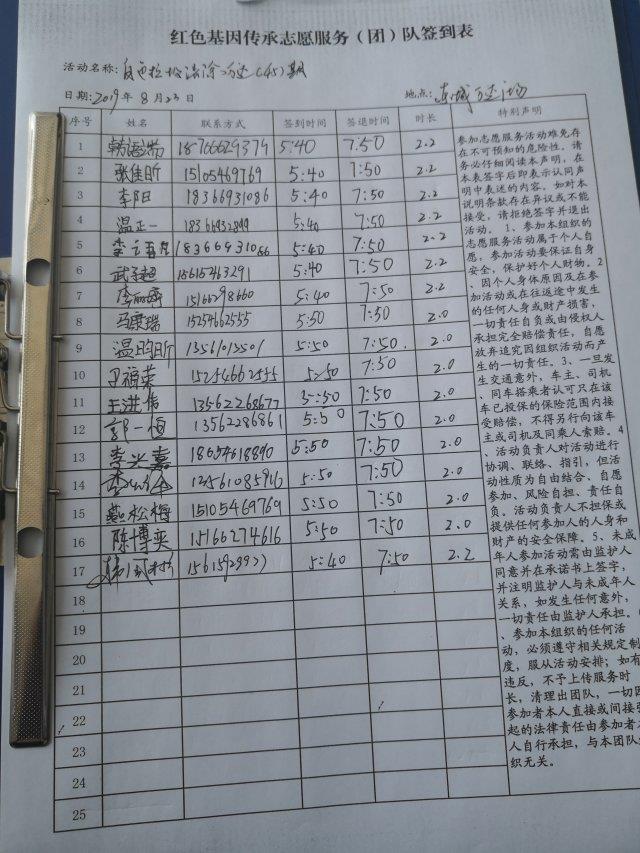 红色基因传承志愿服务（团）队签到表
活动名称：
日期：2019年8月23日 地点：东城万达广场
序号 姓名 联系方式 签到时间 签退时间 时长 特别声明
1 18766629379 5:40 7:50 2.2
2 张佳昕 15105469769 5:40 7:50 2.2
3 李阳 18366931086 5:40 7:50 2.2
4 温正一 18366932899 5:40 7:50 2.2
5 18366931086 5:40 7:50 2.2
6 武子超 15615463291 5:40 7:50 2.2
7 李丽燕 15166298660 5:40 7:50 2.2
8 马康瑞 15254662555 5:50 7:50 2.0
9 温昀昕 13561013501 5:50 7:50 2.0
10 卫福荣 15254662555 5:50 7:50 2.0
11 王洪伟 13562268677 5:50 7:50 2.0
12 郭一恒 13562286861 5:50 7:50 2.0
13 李兴嘉 18654618890 5:50 7:50 2.0
14 5:50 7:50 2.0
15 燕松梅 15105469769 5:50 7:50 2.0
16 陈博奕 15166274616 5:50 7:50 2.0
17 5:40 7:50 2.2
18
19
20
21
22
23
24
25
参加志愿服务活动难免存
在不可预知的危险性。请
务必仔细阅读本声明，在
本表签字后即表示认同声
明中表述的内容。如对本
说明条款存在异议或不能
接受，请拒绝签字并退出
活动。1、参加本组织的
志愿服务活动属于个人自
愿，参加活动要保证自身
安全，保护好个人财物。2
、因个人身体原因及在参
加活动或在往返途中发生
的任何人身或财产损害，
一切责任自负或由侵权人
承担完全赔偿责任，自愿
放弃追究因组织活动而产
生的一切责任。3、一旦发
生交通意外，车主、司机
、同车搭乘者认可只在该
车已投保的保险范围内接
受赔偿，不得另行向该车
主或司机及同乘人索赔。4
、活动负责人对活动进行
协调、联络、指引，但活
动性质为自由结合、自愿
参加、风险自担、责任自
负。活动负责人不担保或
提供任何参加人的人身和
财产的安全保障。5、未成
年人参加活动需由监护人
同意并在承诺书上签字，
并注明监护人与未成年人
关系，如发生任何意外，
一切责任由监护人承担。6
、参加本组织的任何活
动，必须遵守相关规定制
度，服从活动安排；如有
违反，不予上传服务时
长，清理出团队，一切因
参加者本人直接或间接引
起的法律责任由参加者本
人自行承担，与本团队组
织无关。